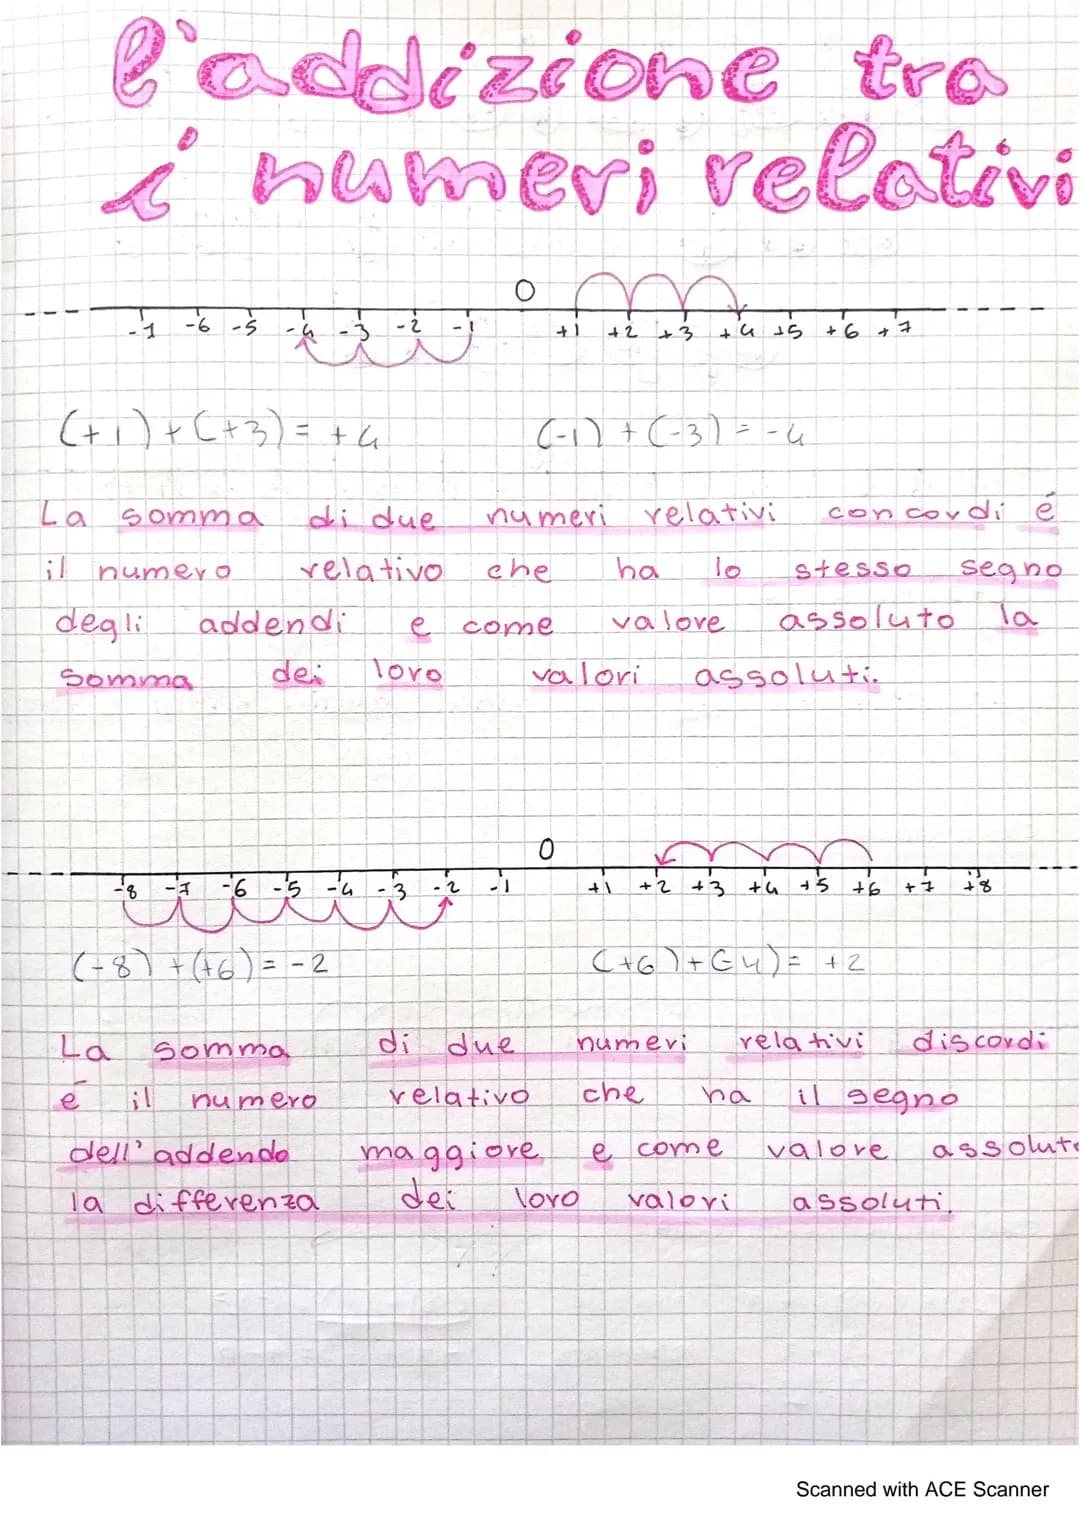 l'addizione tra
i numeri relativi
0
-7 -6 -5 -4 -3 -2 -1 +1 +2 +3 +4 +5 +6 +7
(+1)+(+3)= +4 (-1)+(-3)=-4
La somma di due numeri relativi concordi é
il numero relativo che ha lo stesso segno
degli addendi e come valore assoluto la
somma dei loro valori assoluti.
0
-8 -7 -6 -5 -4 -3 -2 -1 +1 +2 +3 +4 +5 +6 +7 +8
(-8)+(+6)=-2 (+6)+(-4)= +2
La somma di due numeri relativi discordi
é il numero relativo che ha il segno
dell'addendo maggiore e come valore assoluto
la differenza dei loro valori assoluti.
Scanned with ACE Scanner